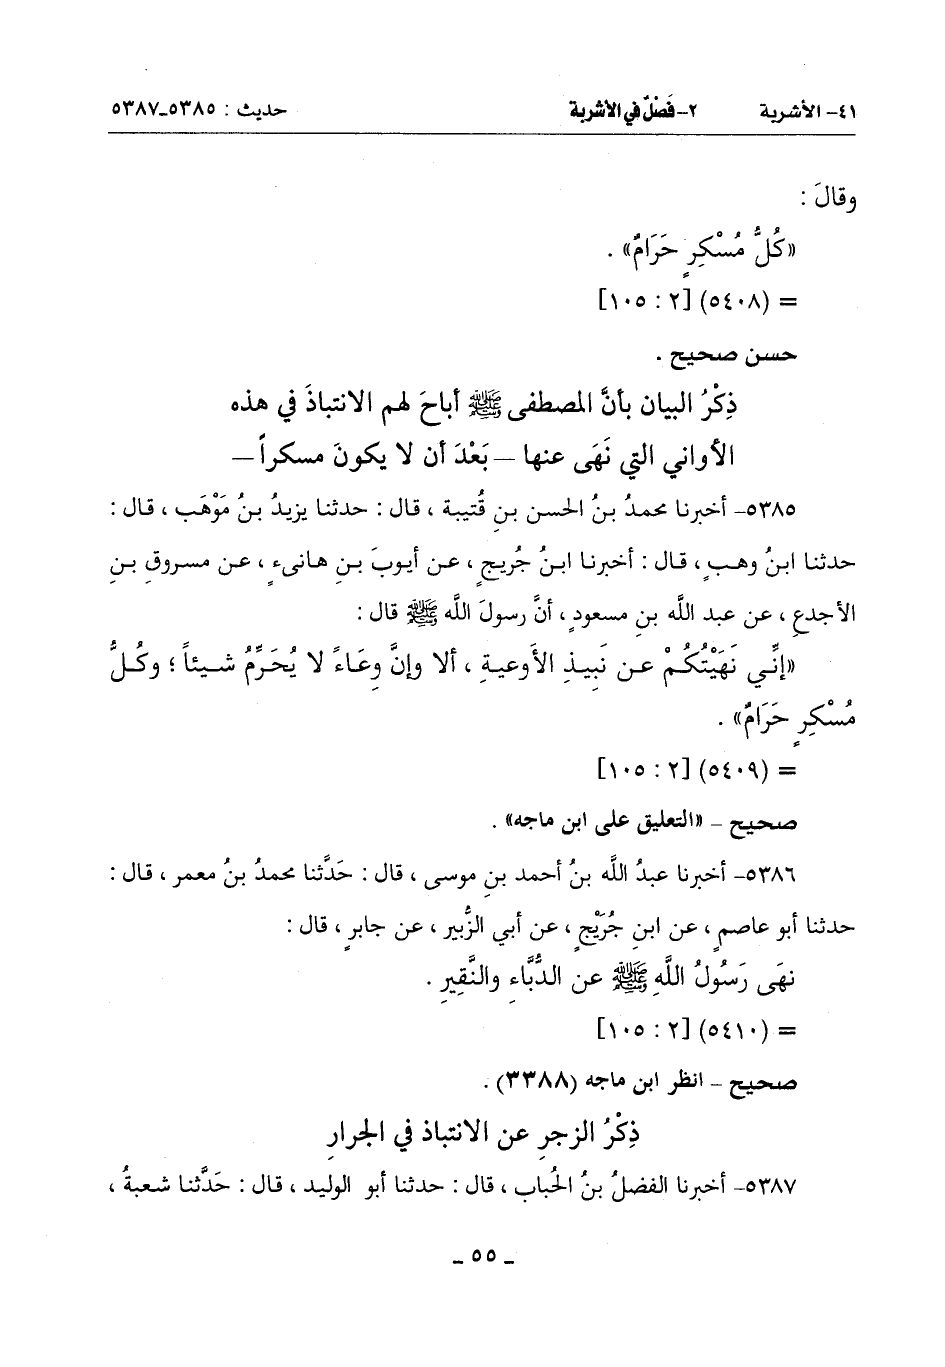 ٤١- الأشربة ٢- فَصْلٌ في الأشربة حديث : ٥٣٨٥-٥٣٨٧
وقالَ :
«كُلُّ مُسْكِرٍ حَرَامٌ» .
= (٥٤٠٨) [٢ : ١٠٥]
حسن صحيح .
ذِكْرُ البيان بأنَّ المصطفى ﷺ أباحَ لهم الانتباذَ في هذه
الأواني التي نَهَى عنها – بَعْدَ أن لا يكونَ مسكراً –
٥٣٨٥- أخبرنا محمدُ بنُ الحسن بنِ قُتيبة ، قال : حدثنا يزيدُ بنُ مَوْهَب ، قال :
حدثنا ابنُ وهبٍ ، قال : أخبرنا ابنُ جُريجٍ ، عن أيوبَ بنِ هانىءٍ ، عن مسروقِ بنِ
الأجدعِ ، عن عبد اللَّه بنِ مسعودٍ ، أنَّ رسولَ اللَّه ﷺ قال :
«إنِّي نَهَيْتُكُمْ عن نَبِيذِ الأوعيةِ ، ألا وإنَّ وِعَاءً لا يُحَرِّمُ شيئاً ؛ وكُلُّ
مُسْكِرٍ حَرَامٌ» .
= (٥٤٠٩) [٢ : ١٠٥]
صحيح – «التعليق على ابن ماجه» .
٥٣٨٦- أخبرنا عبدُ اللَّه بنُ أحمد بنِ موسى ، قال : حَدَّثنا محمدُ بنُ معمر ، قال :
حدثنا أبو عاصمٍ ، عن ابنِ جُرَيْجٍ ، عن أبي الزُّبير ، عن جابرٍ ، قال :
نهَى رَسُولُ اللَّهِ ﷺ عن الدُّبَّاءِ والنَّقِيرِ .
= (٥٤١٠) [٢ : ١٠٥]
صحيح – انظر ابن ماجه (٣٣٨٨) .
ذِكْرُ الزجرِ عن الانتباذ في الجرارِ
٥٣٨٧- أخبرنا الفضلُ بنُ الحُباب ، قال : حدثنا أبو الوليد ، قال : حَدَّثنا شعبةُ ،
– ٥٥ –